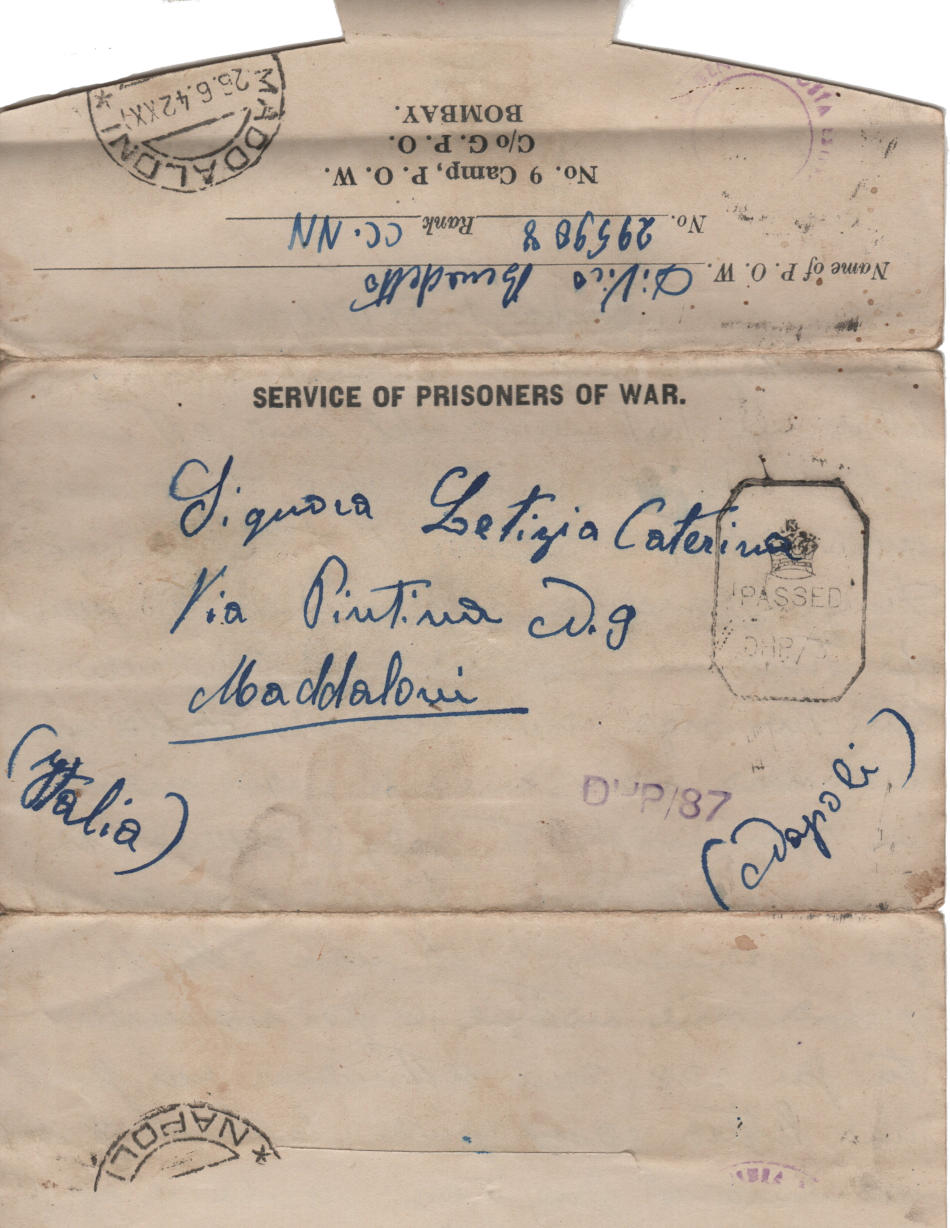 MADDALONI
26.6.42 XX
*
Name of P. O. W. Di Vico Benedetto
No. 295908 Rank CC. NN
No. 9 Camp, P. O. W.
C/o G. P. O.
BOMBAY.
SERVICE OF PRISONERS OF WAR.
Signora Letizia Caterina
Via Pintina N. 9
Maddaloni
(Napoli)
(Italia)
PASSED
DHP/87
* NAPOLI